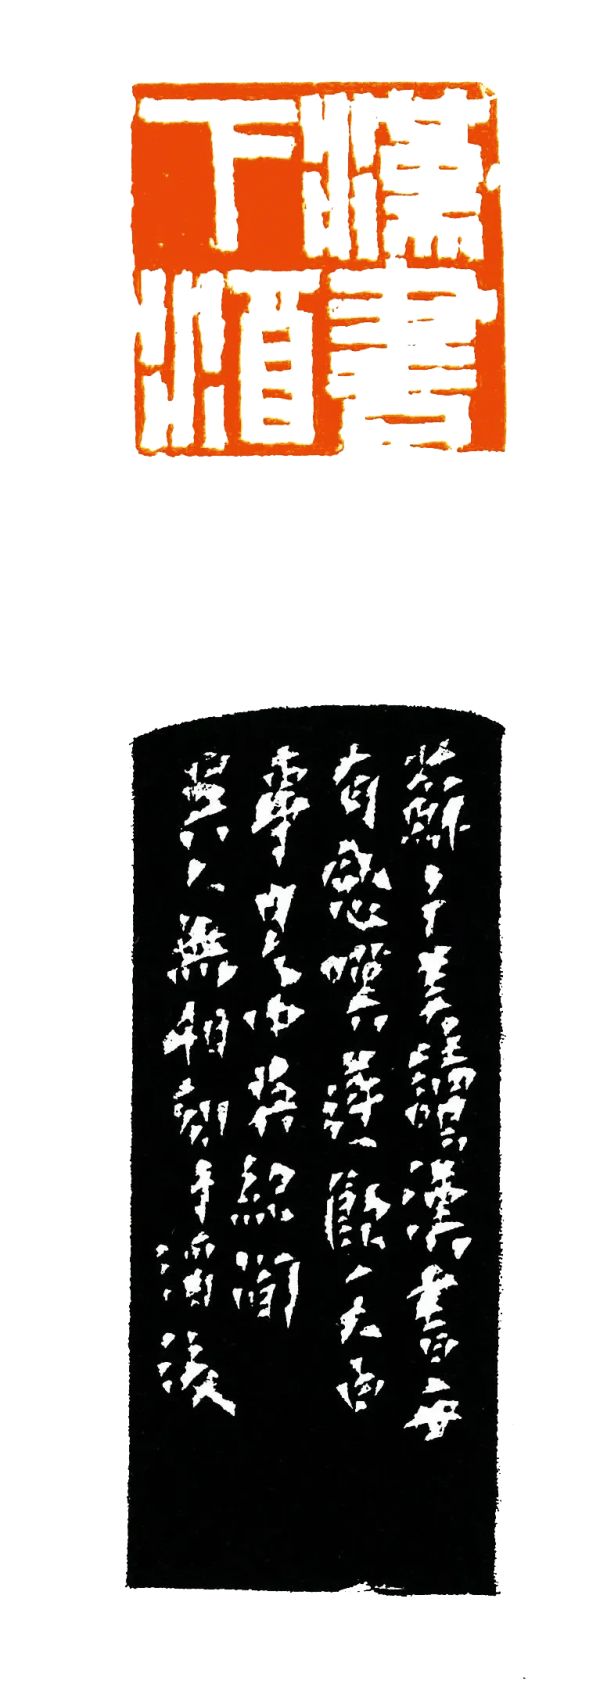 漢書
下酒
蘇子美讀漢書每
有感嘆飲一大白
事見中吳紀聞
吳人無相刻于